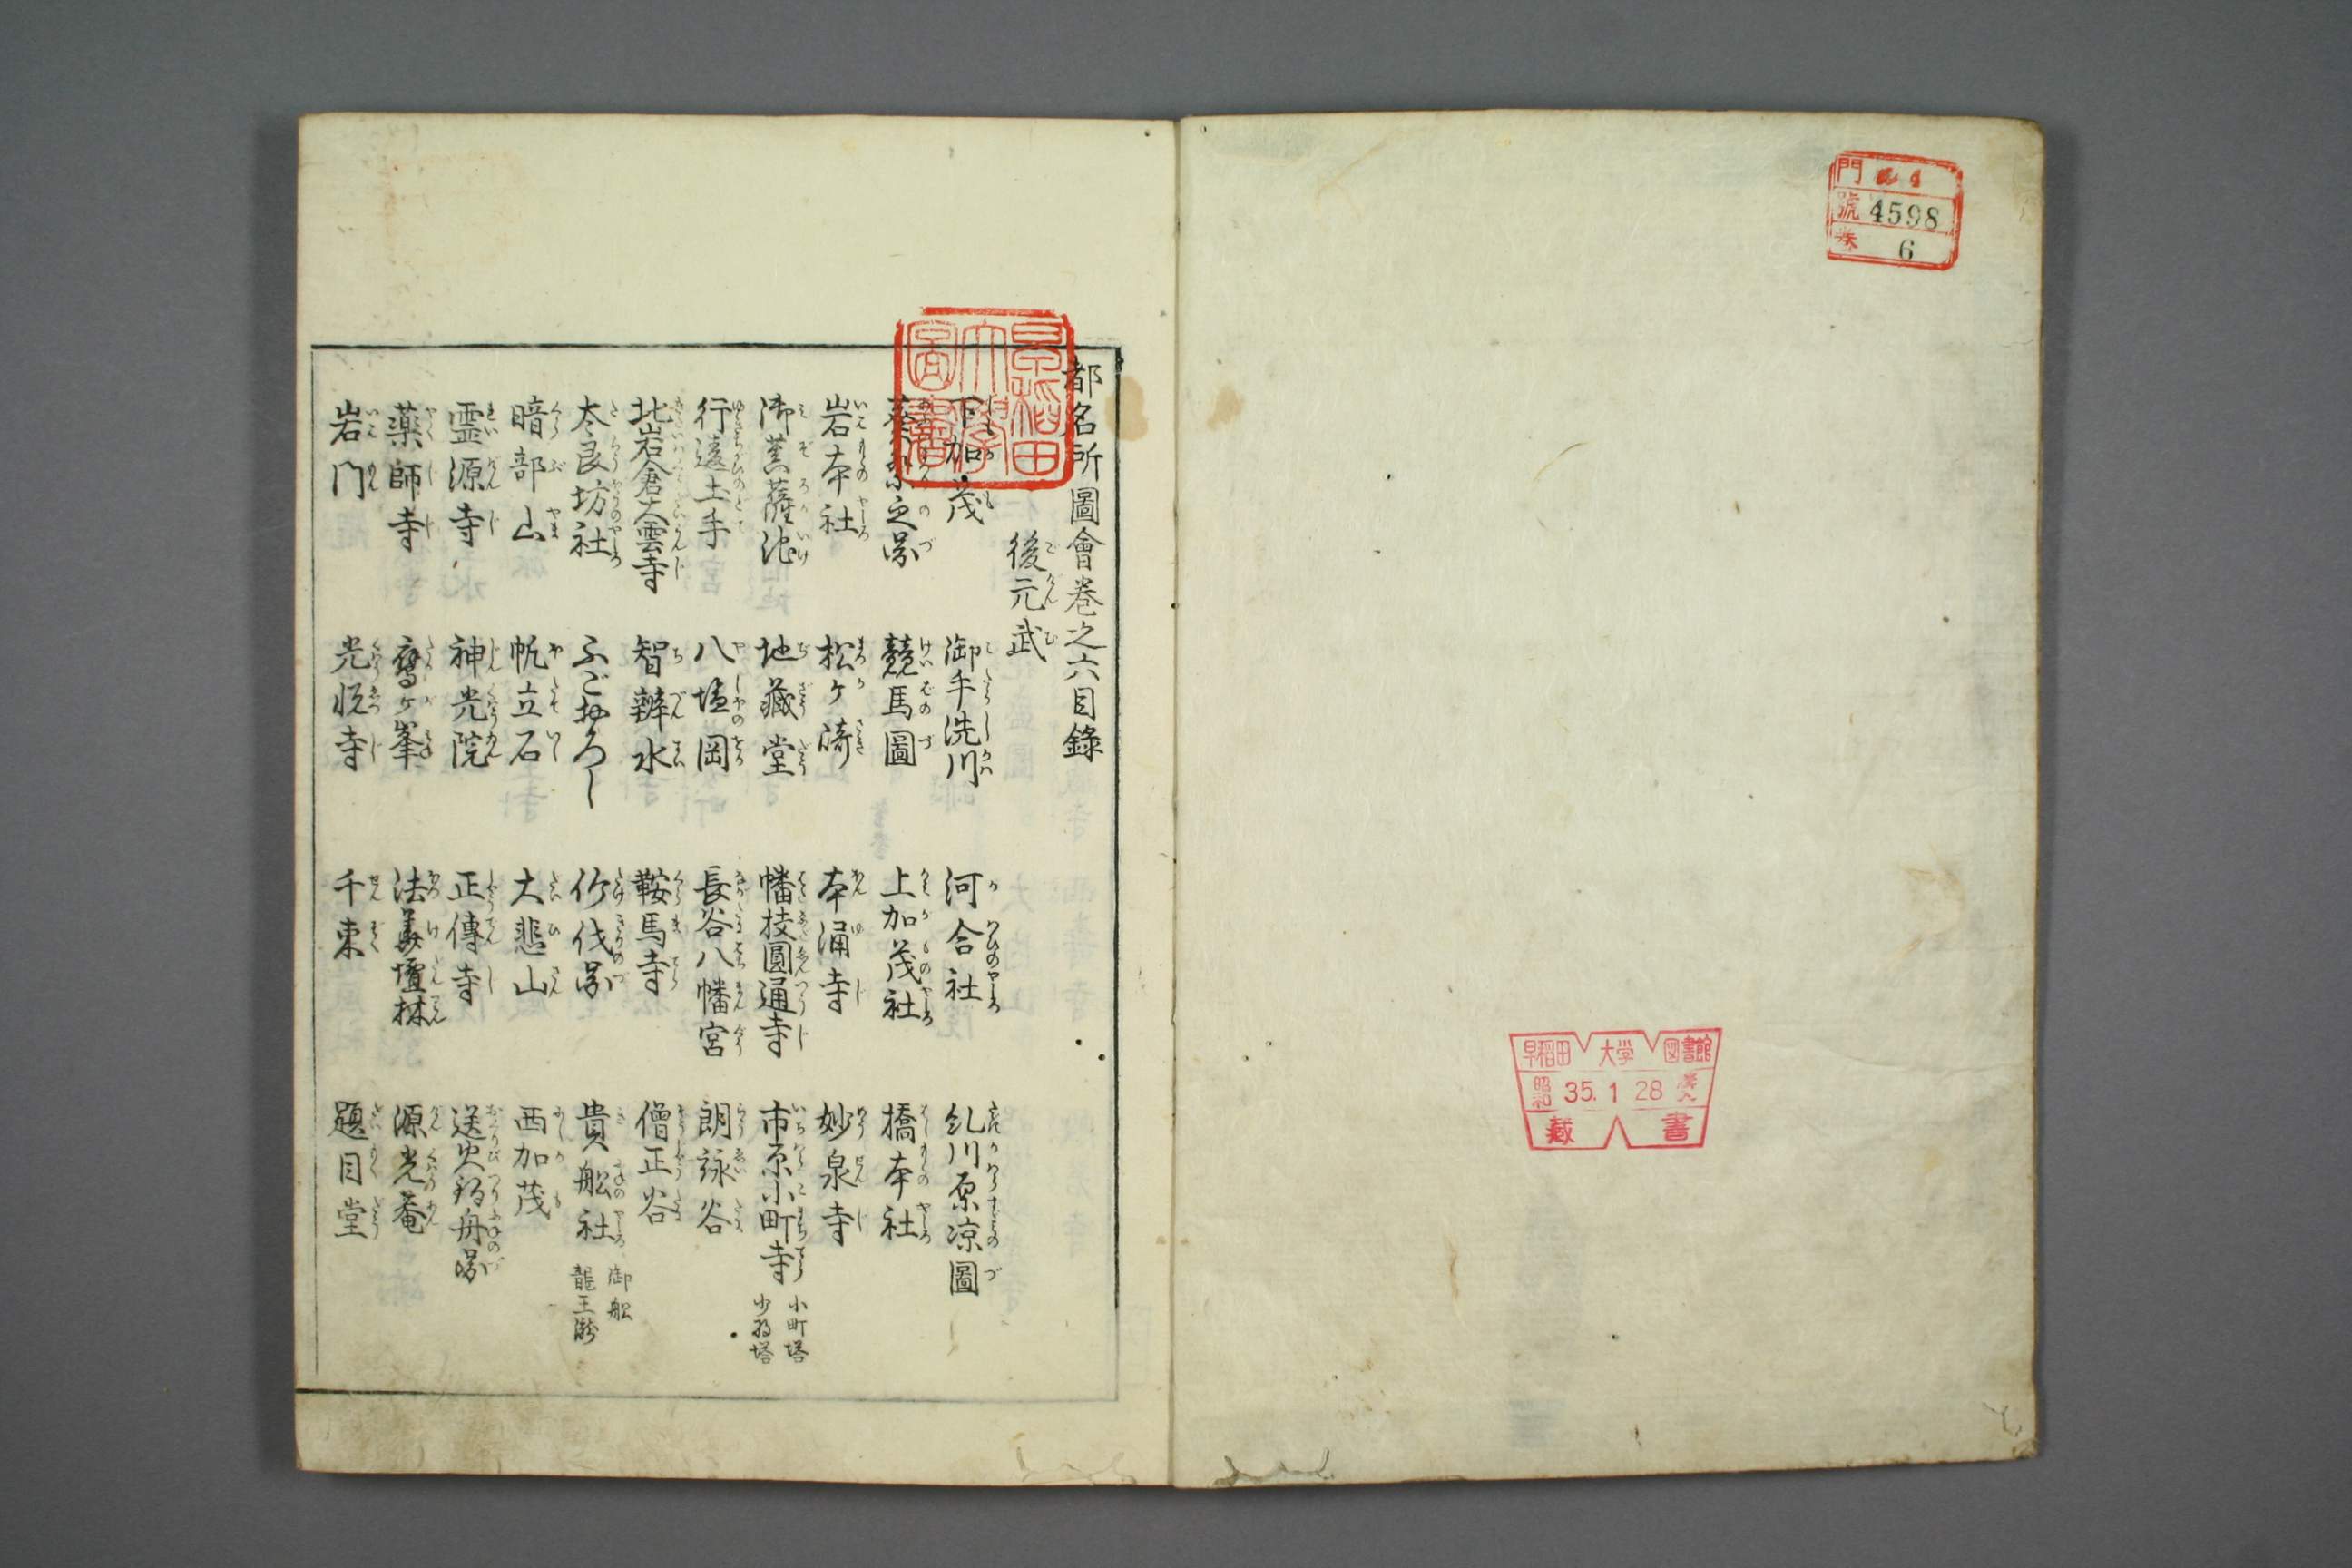 門
號 4598
卷 6
早稲田 大学 図書館
昭和 35.1 28
藏 書
都名所圖會巻之六目錄
後元武
下加茂 御手洗川 河合社 糺川原凉圖
葵祭之圖 競馬圖 上加茂社 橋本社
岩本社 松ヶ﨑 本涌寺 妙泉寺
御菩薩池 地藏堂 幡枝圓通寺 市原小町寺 小町塔 少将塔
行違土手 八塩岡 長谷八幡宮 朗詠谷
北岩倉大雲寺 智辨水 鞍馬寺 僧正谷
太良坊社 ふごおろし 竹伐圖 貴舩社 御舩 龍王瀧
暗部山 帆立石 大悲山 西加茂
霊源寺 神光院 正傳寺 送火船舟圖
薬師寺 鷹ヶ峯 法華壇林 源光菴
岩門 光悦寺 千束 題目堂
早稲田大學圖書